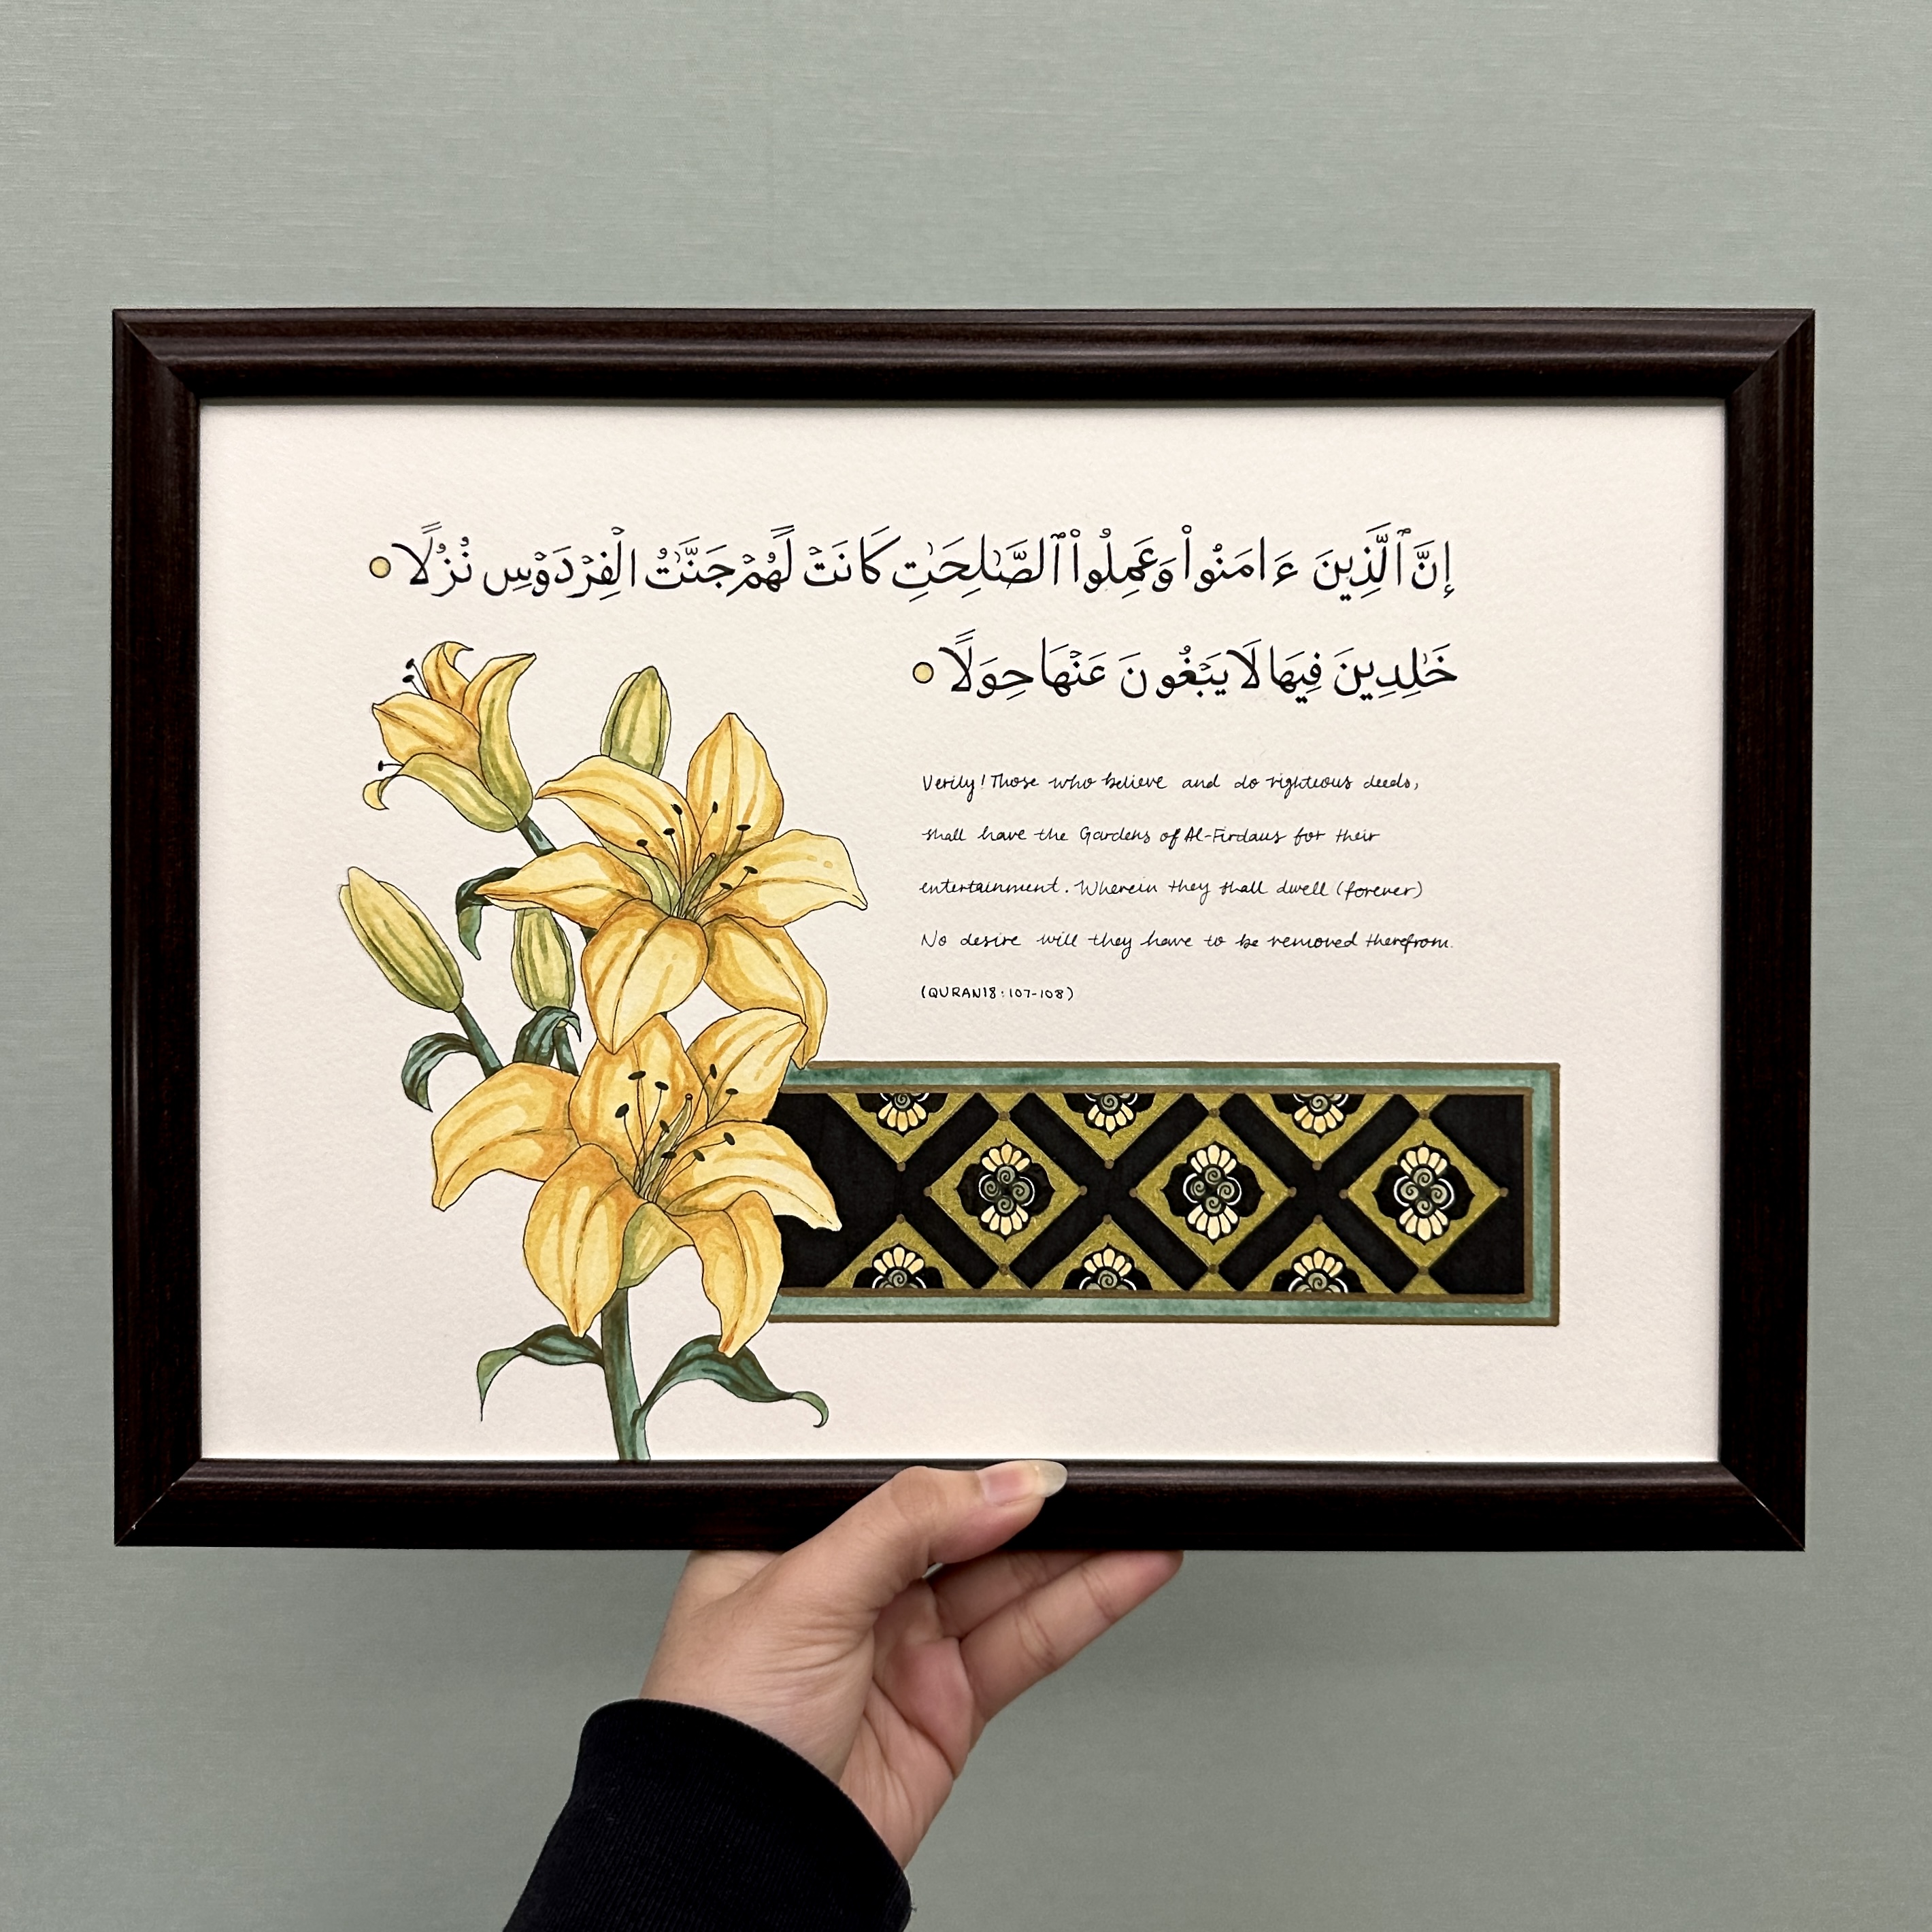 إِنَّ ٱلَّذِينَ ءَامَنُوا۟ وَعَمِلُوا۟ ٱلصَّـٰلِحَـٰتِ كَانَتْ لَهُمْ جَنَّـٰتُ الْفِرْدَوْسِ نُزُلًا
خَـٰلِدِينَ فِيهَا لَا يَبْغُونَ عَنْهَا حِوَلًا
Verily! Those who believe and do righteous deeds,
shall have the Gardens of Al-Firdaus for their
entertainment. Wherein they shall dwell (forever)
No desire will they have to be removed therefrom.
(QURAN18:107-108)